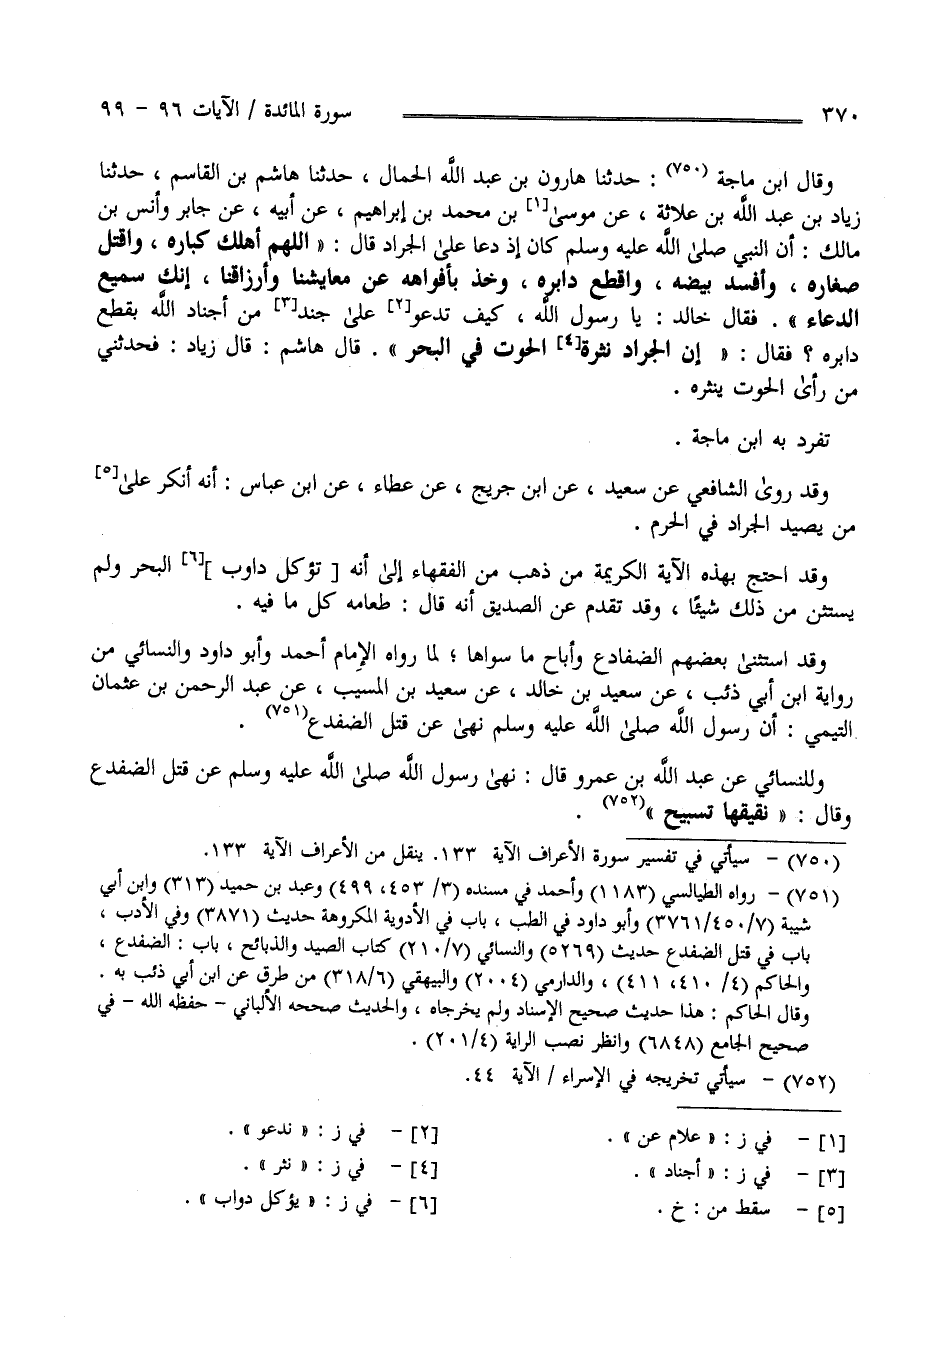 ٣٧٠ سورة المائدة / الآيات ٩٦ - ٩٩
وقال ابن ماجة (٧٥٠) : حدثنا هارون بن عبد اللَّه الحمال ، حدثنا هاشم بن القاسم ، حدثنا
زياد بن عبد اللَّه بن علاثة ، عن موسىٰ[١] بن محمد بن إبراهيم ، عن أبيه ، عن جابر وأنس بن
مالك : أن النبي صلىٰ اللَّه عليه وسلم كان إذ دعا علىٰ الجراد قال : « اللهم أهلك كباره ، واقتل
صغاره ، وأفسد بيضه ، واقطع دابره ، وخذ بأفواهه عن معايشنا وأرزاقنا ، إنك سميع
الدعاء » . فقال خالد : يا رسول اللَّه ، كيف تدعو[٢] علىٰ جند[٣] من أجناد اللَّه بقطع
دابره ؟ فقال : « إن الجراد نثرة[٤] الحوت في البحر » . قال هاشم : قال زياد : فحدثني
من رأىٰ الحوت ينثره .
تفرد به ابن ماجة .
وقد روىٰ الشافعي عن سعيد ، عن ابن جريج ، عن عطاء ، عن ابن عباس : أنه أنكر علىٰ[٥]
من يصيد الجراد في الحرم .
وقد احتج بهذه الآية الكريمة من ذهب من الفقهاء إلىٰ أنه [ تؤكل داوب ][٦] البحر ولم
يستثن من ذلك شيئًا ، وقد تقدم عن الصديق أنه قال : طعامه كل ما فيه .
وقد استثنىٰ بعضهم الضفادع وأباح ما سواها ؛ لما رواه الإمام أحمد وأبو داود والنسائي من
رواية ابن أبي ذئب ، عن سعيد بن خالد ، عن سعيد بن المسيب ، عن عبد الرحمن بن عثمان
التيمي : أن رسول اللَّه صلىٰ اللَّه عليه وسلم نهىٰ عن قتل الضفدع(٧٥١) .
وللنسائي عن عبد اللَّه بن عمرو قال : نهىٰ رسول اللَّه صلىٰ اللَّه عليه وسلم عن قتل الضفدع
وقال : « نقيقها تسبيح »(٧٥٢) .
(٧٥٠) - سيأتي في تفسير سورة الأعراف الآية ١٣٣. ينقل من الأعراف الآية ١٣٣.
(٧٥١) - رواه الطيالسي (١١٨٣) وأحمد في مسنده (٣/ ٤٥٣، ٤٩٩) وعبد بن حميد (٣١٣) وابن أبي
شيبة (٣٧٦١/٤٥٠/٧) وأبو داود في الطب ، باب في الأدوية المكروهة حديث (٣٨٧١) وفي الأدب ،
باب في قتل الضفدع حديث (٥٢٦٩) والنسائي (٢١٠/٧) كتاب الصيد والذبائح ، باب : الضفدع ،
والحاكم (٤/ ٤١٠، ٤١١) ، والدارمي (٢٠٠٤) والبيهقي (٣١٨/٦) من طرق عن ابن أبي ذئب به .
وقال الحاكم : هذا حديث صحيح الإسناد ولم يخرجاه ، والحديث صححه الألباني - حفظه الله - في
صحيح الجامع (٦٨٤٨) وانظر نصب الراية (٢٠١/٤) .
(٧٥٢) - سيأتي تخريجه في الإسراء / الآية ٤٤.
[١] - في ز : « علام عن » . [٢] - في ز : « ندعو » .
[٣] - في ز : « أجناد » . [٤] - في ز : « نثر » .
[٥] - سقط من : خ . [٦] - في ز : « يؤكل دواب » .